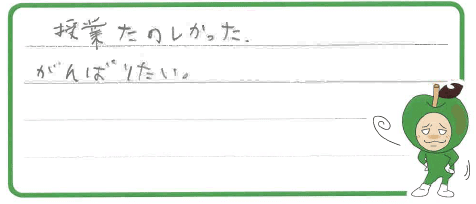 授業たのしかった.
がんばりたい。